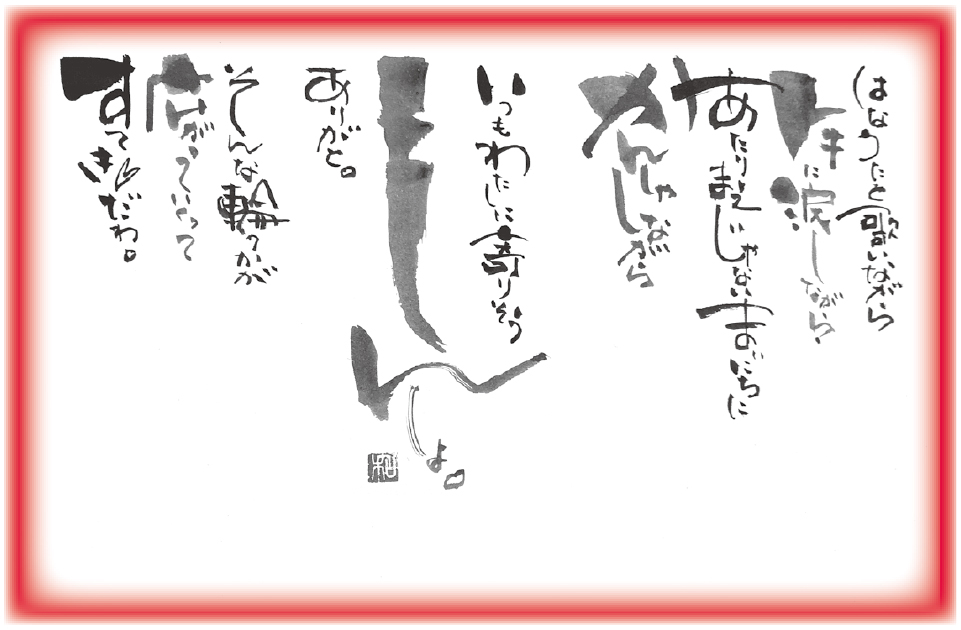 はなうたを歌いながら
トキに涙しながら
あたりまえじゃないまいにちに
かんしゃしながら
いつもわたしに寄りそう
よ。
ありがと。
そんな輪っかが
広がっていって
すてきだわ。